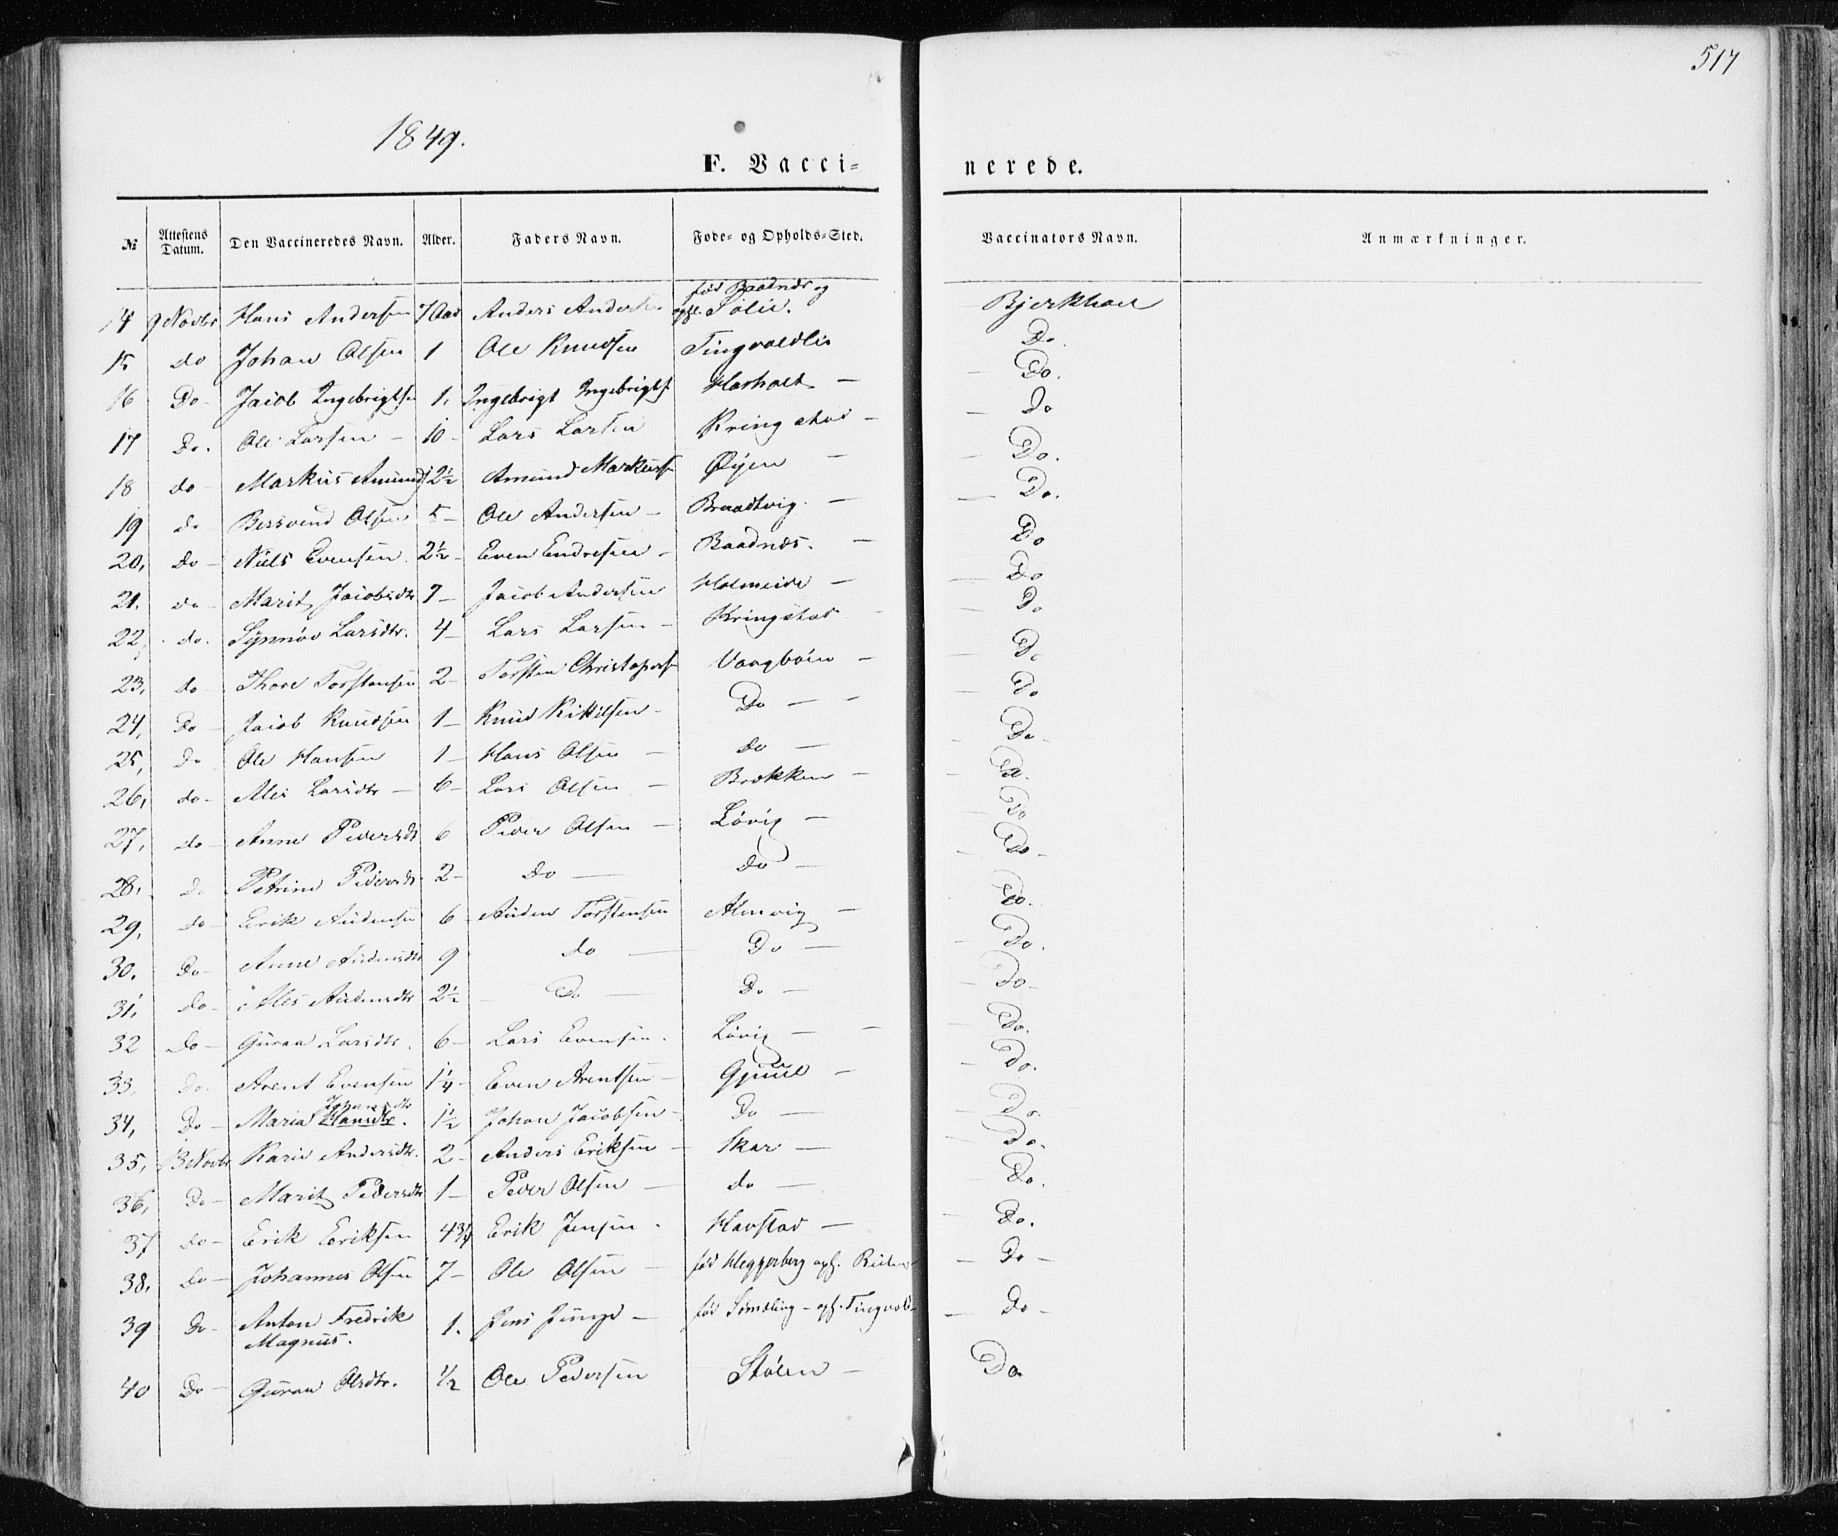 517
1849.
F. Vaccinerede.
№ Attestens Datum. Den Vaccineredes Navn. Alder. Faders Navn. Føde- og Opholds-Sted. Vaccinators Navn. Anmærkninger.
14 9 Novbr Hans Andersen 7 Anders Anders født Baadnæs og oph. Solie. Bjerkhoel
15 do Johan Olsen 1 Ole Knudsen Tingvoldlie Do.
16 Do - Jacob Ingebrigts 1. Ingebrigt Ingebrigts Harholt — Do.
17 Do. Ole Larsen — 10 - Lars Larsen Kringstad — Do
18 do Markus Amund 12½ Amund Markuss Øyen — Do.
19 do - Bersvend Olsen 5 - Ole Andersen — Braadtvig. — Do.
20, do - Niels Evensen 2½ - Even Endresen - Baadnæs. — Do
21. do - Marit Jacobsdtr 7 - Jacob Andersen Holmeide — Do
22, do. Synnøv Larsdtr. 4 - Lars Larsen - Kringstad Do
23, do Thore Torstensen 2 - Torsten Christophers Vaagbøen — Do
24, Do - Jacob Knudsen 1 - Knud Kittilsen - Do — Do
25, Do Ole Hansen 1 - Hans Olsen — do — Do -
26, do - Ales Larsdtr — 6 - Lars Olsen — Brækken — Do.
27, do - Anne Pedersdt 6 Peder Olsen — Løvig — Do
28. do Petrine Pedersdt 2 - do — do — Do -
29, do - Erik Audensen 6 - Auden Torstensen Almvig — Do.
30. Do - Anne Audensdtr 9 do — Do — Do.
31, do - Ales Audensdtr 2½ Do — Do — Do -
32 Do - Guraa Larsdtr. 6 - Lars Evensen. Løvig — Do.
33. Do. Arent Evensen 1¼ - Even Arentsen - Gjuul — Do.
34, Do - Maria Johansdtr Hansdtr. 1½ Johan Jacobsen - Do — Do.
35, 13 Novbr Karie Andersdtr. 2 - Anders Eriksen — Skar — Do.
36, Do - Marit Pedersdtr 1 - Peder Olsen — do — Do.
37 do - Erik Eriksen 4¾ Erik Jensen . Havstad — Do.
38, do — Johannes Olsen 7 - Ole Olsen — født Kleggerberg oph. Do -
39 Do - Anton Fredrik Magnus. 1. Jens — født oph. Tingvold Do -
40 Do - Guraa Olsdtr. ½ Ole Pedersen Stølen — Do.